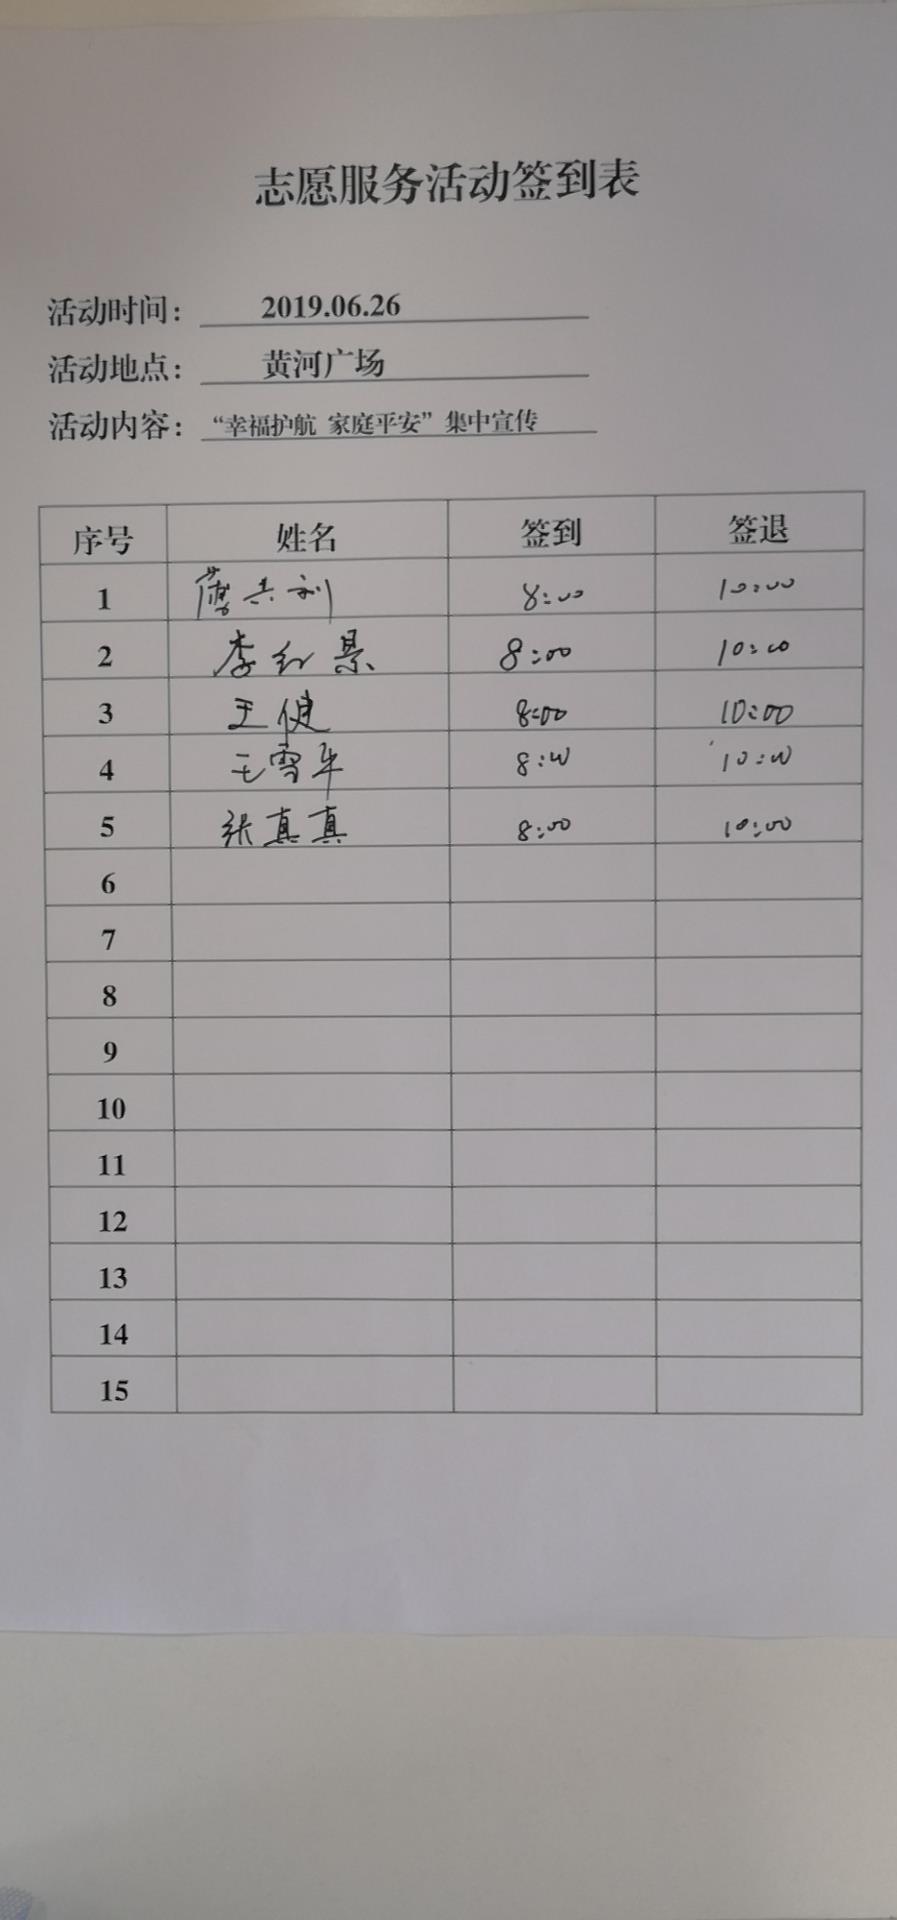 志愿服务活动签到表
活动时间： 2019.06.26
活动地点： 黄河广场
活动内容： “幸福护航 家庭平安”集中宣传
序号 姓名 签到 签退
1 8:00 10:00
2 李红景 8:00 10:00
3 王健 8:00 10:00
4 王雪平 8:00 10:00
5 张真真 8:00 10:00
6
7
8
9
10
11
12
13
14
15